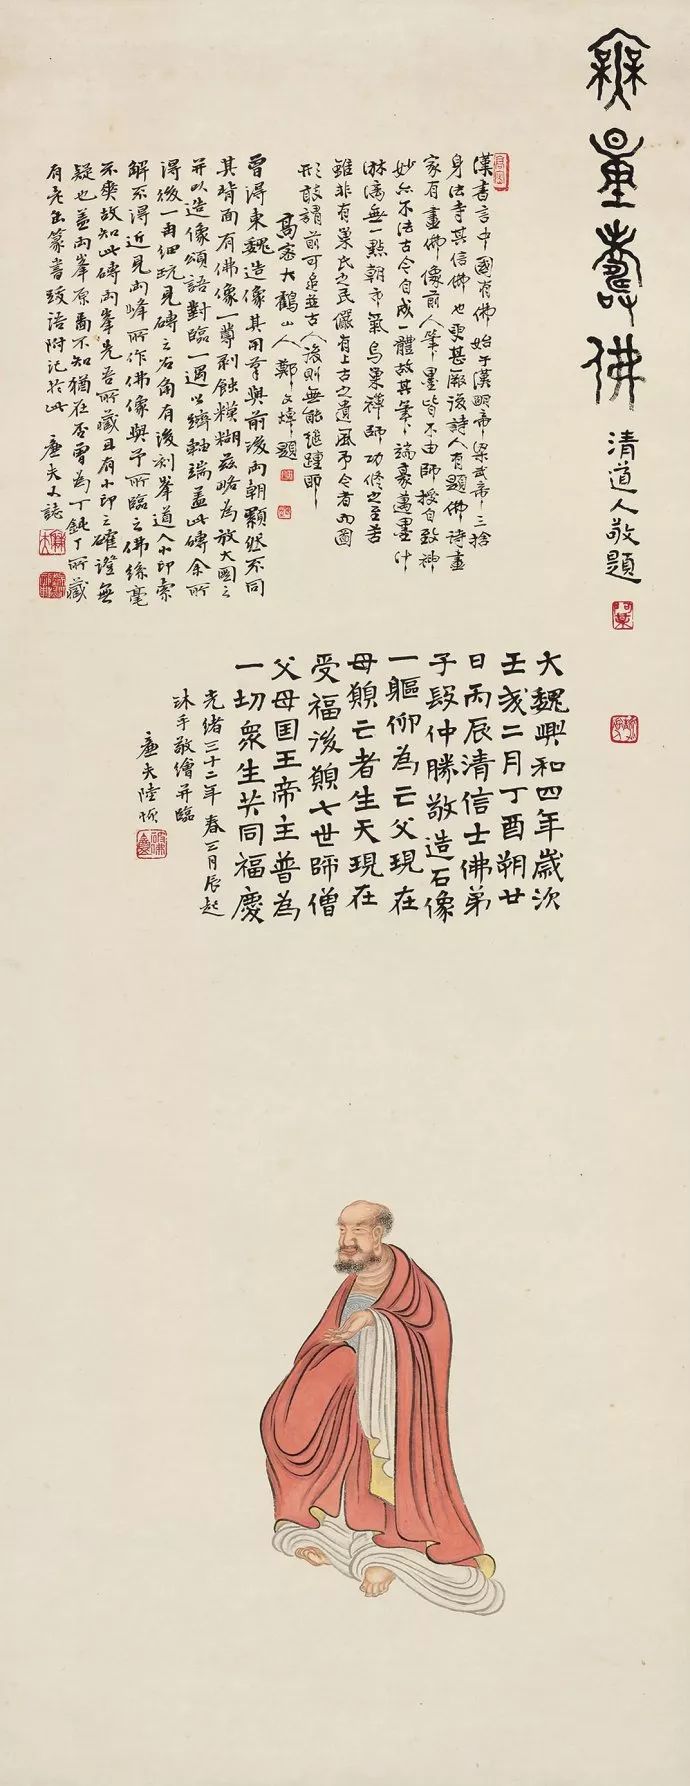 無量壽佛
清道人敬題
漢書言中國有佛始于漢明帝梁武帝三捨
身法寺其信佛也更甚厥後詩人有題佛詩畫
家有畫佛像前人筆墨皆不由師授自致神
妙亦不法古今自成一體故其筆下端豪萬墨汁
淋漓無一點朝市氣鳥巢禪師功修之至苦
雖非有巢氏之民儼有上古之遺風予今者西圖
形敢謂前可追並古人後則無能繼踵耶
高密大鶴山人鄭文焯題
曾得東魏造像其用筆與前後兩朝顯然不同
其背面有佛像一尊剥蝕糢糊茲略為放大圖之
并以造像頌語對臨一過以儕軸端蓋此磚余所
得後一再細玩見磚之右角有後刻峯道人小印索
解不得近見兩峰所作佛像與予所臨之佛絲毫
不爽故知此磚兩峯先吾所藏且有小印之確證無
疑也蓋兩峯原畫不知猶在否曾為丁鈍丁所藏
有老缶篆書跋語附記於此 廉夫又誌
大魏興和四年歲次
壬戌二月丁酉朔廿
日丙辰清信士佛弟
子段仲勝敬造石像
一軀仰為亡父現在
母願亡者生天現在
受福後願七世師僧
父母国王帝主普為
一切衆生共同福慶
光緒三十二年春三月辰起
沐手敬繪并臨
廉夫陸恢